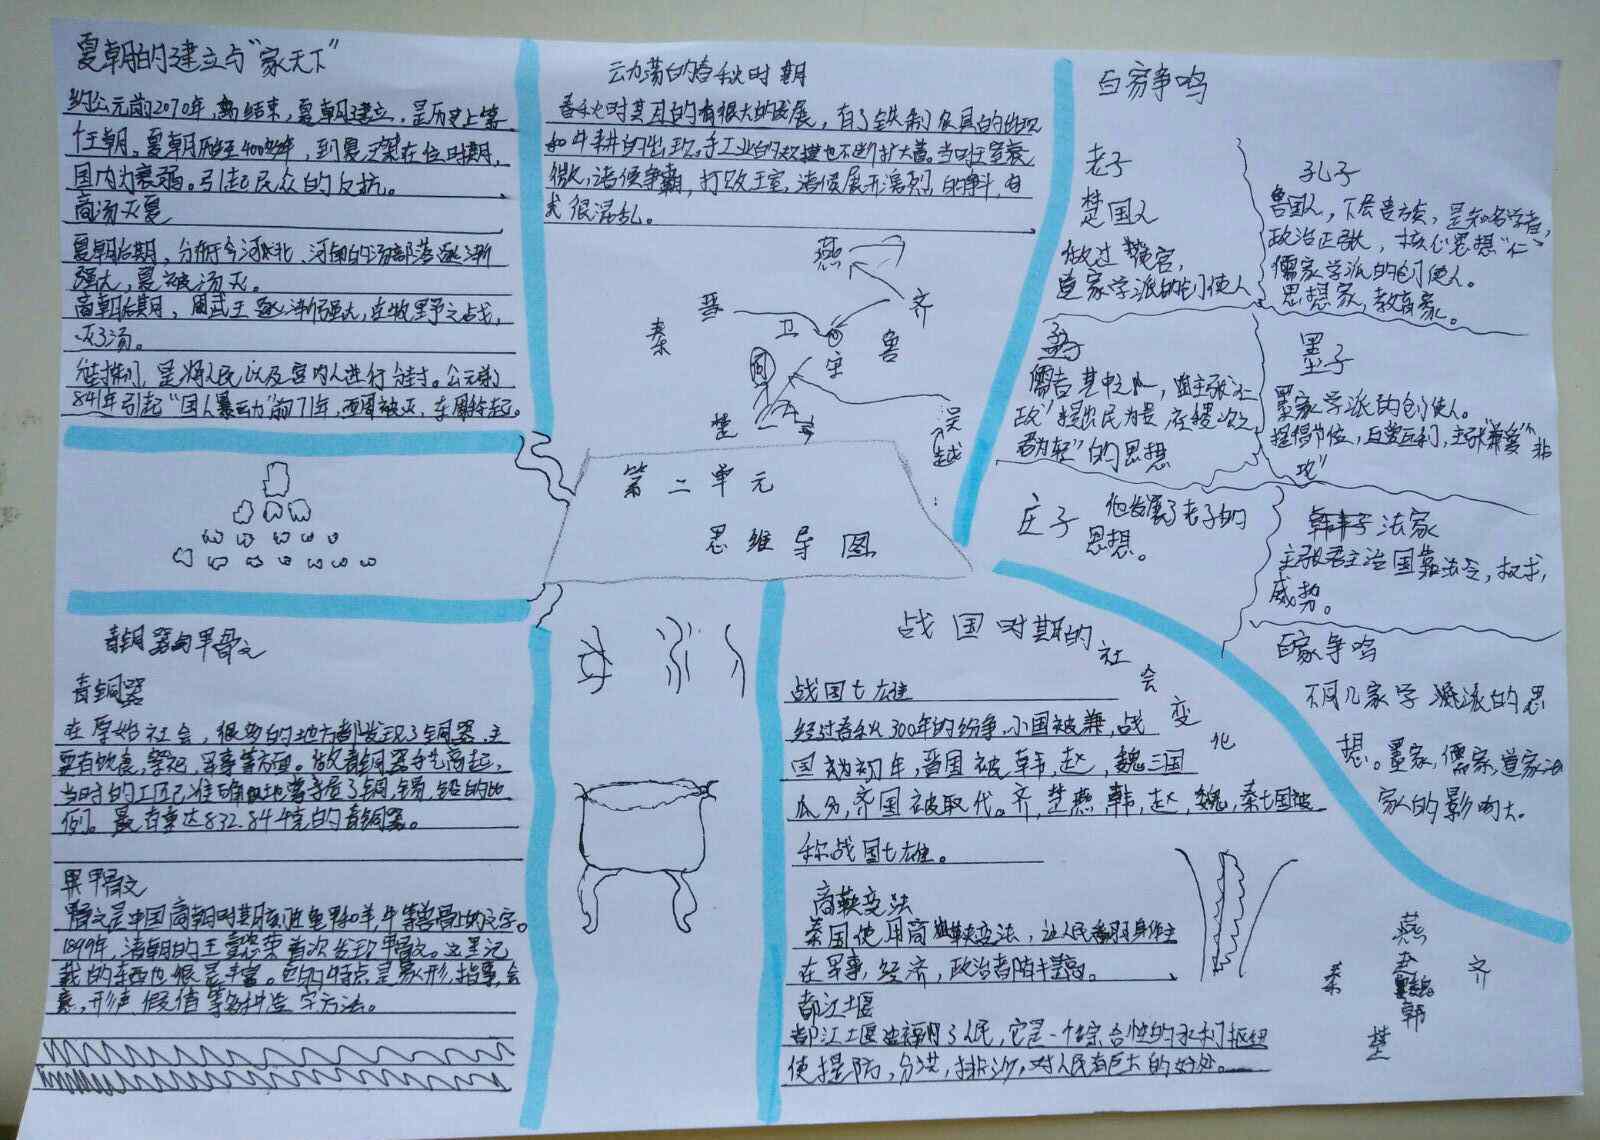 夏朝的建立与“家天下”
约公元前2070年，禹结束，夏朝建立，是历史上第
一个王朝。夏朝历经400多年，到夏桀在位时期，
国内为衰弱。引起民众的反抗。
商汤灭夏
夏朝后期，分布于今河北、河南的汤部落逐渐
强大，夏被汤灭。
商朝后期，周武王逐渐强大，在牧野之战，
灭了汤。
是将人民以及宫内人进行分封。公元前
841年引起“国人暴动”前771年，西周被灭，东周
青铜器与甲骨文
青铜器
在原始社会，很多的地方都发现了铜器，主
要有饮食，祭祀，军事等方面。
当时的工匠准确地掌握了铜，锡，铅的比
例。最有重达832.84千克的青铜器。
甲骨文
骨文是中国商朝时期刻在龟甲和羊，牛等兽骨上的文字。
1899年，清朝的王懿荣首次发现甲骨文。这里记
载的东西也很是丰富。它的特点是象形，指事，会
意，形声，假借等多种造字方法。
动荡的春秋时期
春秋时期的有很大的发展，有了铁制农具的出现
和牛耕的出现。手工业的规模也不断扩大着。当时王室衰
微，诸侯争霸，打败王室，诸侯展开激烈的争斗，
很混乱。
燕
晋
齐
秦
卫
鲁
宋
周
楚
吴
越
第二单元
思维导图
百家争鸣
老子
楚国人
做过
道家学派的创使人
孔子
鲁国人，下层贵族，是知名学者，
政治正张，核心思想“仁”
儒家学派的创使人。
思想家，教育家。
儒者其中之一
政”提出民为贵，在稷次之
君为轻”的思想
墨子
墨家学派的创使人。
提倡节俭，主张“兼爱”“非
攻”
庄子
他发展了老子的
思想。
韩非子 法家
主张君主治国靠法令，权术，
威势。
百家争鸣
不同几家学派的思
想。墨家，儒家，道家法
家人的影响大。
战国时期的社会变化
战国七雄
经过春秋300年的纷争，小国被兼，战
国初年，晋国被韩，赵，魏三国
瓜分，齐国被取代。齐，楚燕，韩，赵，魏，秦七国被
称战国七雄。
商鞅变法
秦国使用商鞅变法，让人民翻身作主
在军事，经济，政治者
都江堰
都江堰造福了人民，它是一个综合性的水利枢纽
使提防，分洪，排沙，对人民有巨大的好处。
燕
赵
魏
韩
齐
秦
楚